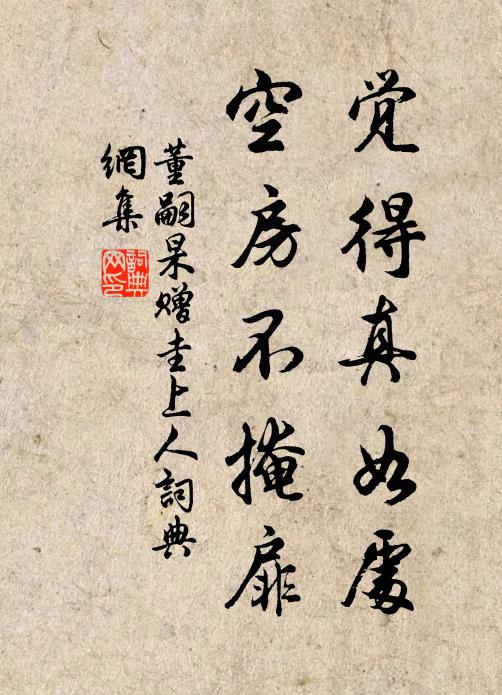 觉得真如處
空房不掩扉
董嗣杲赠圭上人詞典
網集
詞典
网印